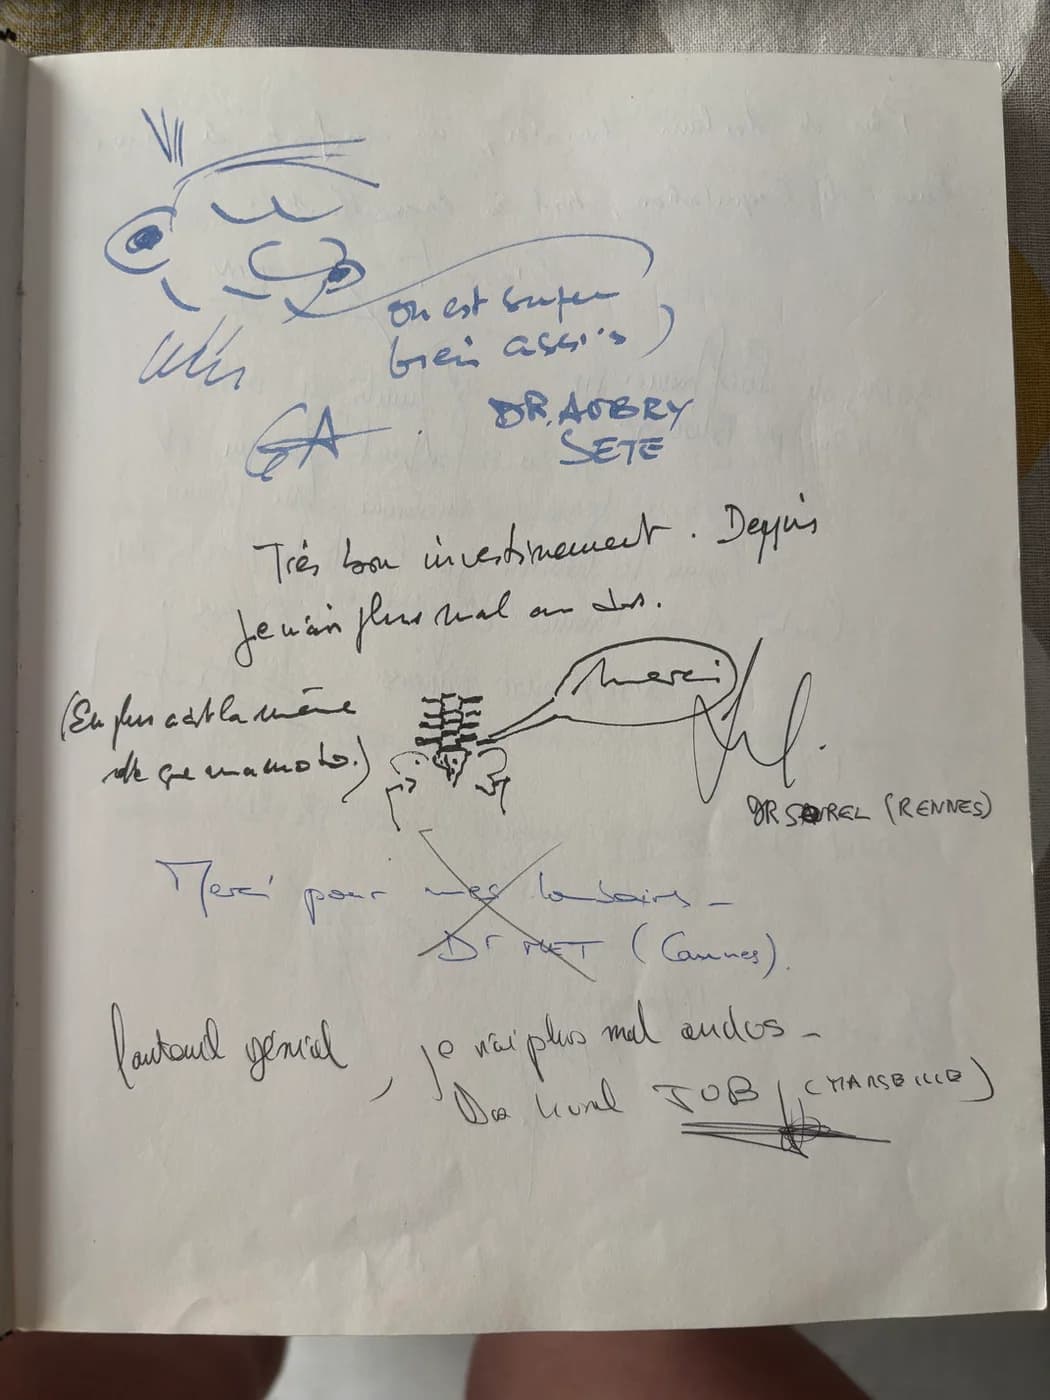 on est super
bien assis
GA
DR. AUBRY
SETE
Très bon investissement. Depuis
je n'ai plus mal au dos.
Merci
(En plus c'est la même
que ma moto.)
DR SAUREL (RENNES)
Merci pour mes lombaires -
Dr MET (Cannes).
fauteuil génial, je n'ai plus mal au dos -
JOB (MARSEILLE)